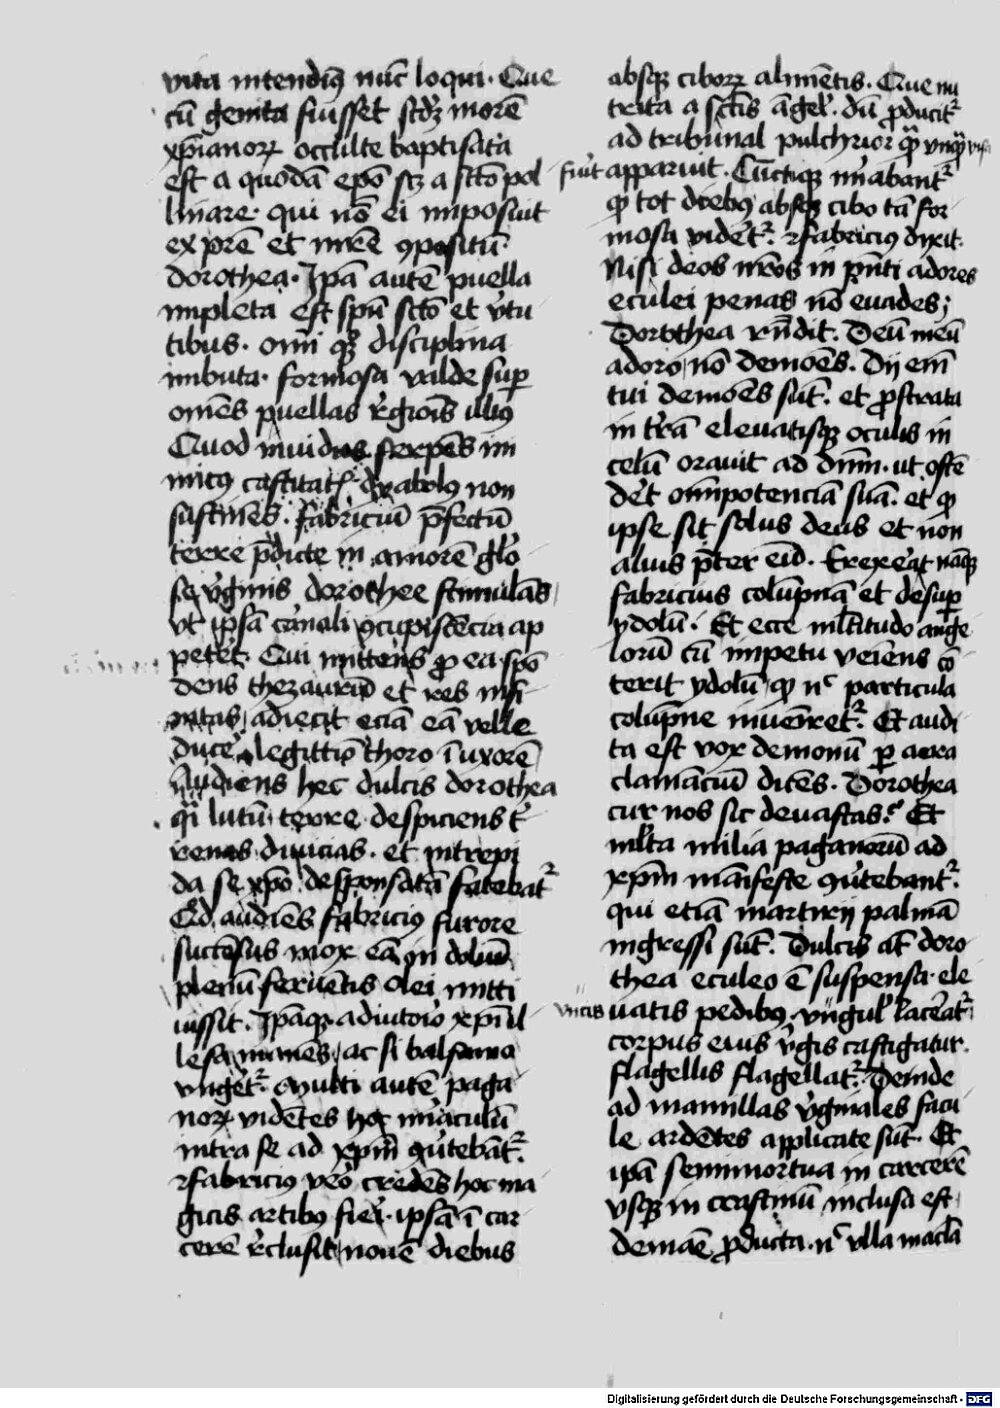 vita intendimꝰ nūc loqui. Que
cū genita fuisset scdꝫ morē
xp̄ianoꝝ occulte baptisata
est a quodā ep̄o scꝫ a sctō pol
linare. qui nō ei imposuit
ex prē et mrē ꝯpositū
dorothea. Ip̄a autē puella
impleta est spū sctō et v̓tu
tibus. om̄i qꝫ disciplina
imbuta. formosa valde sup̄
om̄es puellas r̓gīois illiꝰ
Quod inuidꝰ serpēs ini
micꝰ castitatis dyabolꝰ non
sustinēs. fabriciū p̄fectū
terre p̄dicte in amorē glo̓
se v̓ginis dorothee stimulās
vt ip̄sā carnali ꝯcupiscēcia ap
petēt. Qui mittens ꝓ ea spō
dens thezaurū et res infi
nitas adiecit eciā eā velle
ducē legittīo thoro ī uxorē
Audiens hec dulcis dorothea
qͣi lutū terre despiciens t̓
renas diuicias. et intrepi
da se xp̄o desponsatā fatebatᷣ
Qd̓ audiēs fabriciꝰ furore
succēsus mox eā in doliū
plenū feruētis olei mitti
iussit. Ip̄aqꝫ adiutoīo xp̄i il
lesa manēs ac si balsamo
vngēt̓. Multi autē paga
noꝝ vidētes hoc mīaculū
intra se ad xp̄m ꝯu̓tebāt̓.
fabriciꝰ veo̓ credēs hoc ma
gicis artibꝰ fieri. ipsā ī car
cerē r̓clusit nouē diebus
absqꝫ ciboꝝ alimētis. Que nu
trita a sctīs āgel̓. dū ꝓducit̓
ad tribunal pulchrior qͣ vnqͣ visa
fuit apparuit. Cūctiqꝫ mīabant̓
ꝙ tot diebꝰ absqꝫ cibo tā for
mosa vidēt̓. fabriciꝰ dixit.
Nisi deos nr̄os in p̄nti adores
eculei penas nō euades;
Dorothea rn̄dit. Deū meū
adoro nō demoēs. Dij em̄
tui demoēs sūt. et ꝓstrata
in t̓rā eleuatisqꝫ oculis in
celū orauit ad dn̄m. ut ostē
dēt om̄ipotenciā suā. et ꝙ
ipse sit solus deus et non
alius p̄ter eū. Erexēat nāqꝫ
fabricius colūpnā et desup̄
ydolū. Et ecce ml̓titudo ange
lorū cū impetu veiēns cō
terit ydolū ꝙ nͨ particula
colūpne inuenret̓. Et audi
ta est vox demonū ꝑ aera
clamāciū dicēs. Dorothea
cur nos sic deuastas? Et
ml̓ta milia paganorū ad
xp̄m mānifeste ꝯu̓tebant̓.
qui etiā martirij palmā
ingressi sūt. Dulcis at̄ doro
thea eculeo ē suspensa. ele
uatis pedibꝰ. vncis vngul̓ lacēat̓
corpus eius v̓gis castigatur.
flagellis flagellat̓. Deinde
ad mamillas v̓ginales facu
le ardētes applicate sūt. Et
ipā seminortua in carcerē
vsqꝫ in crastinū inclusa est
demāe ꝓducta. nͨ vlla macl̓a